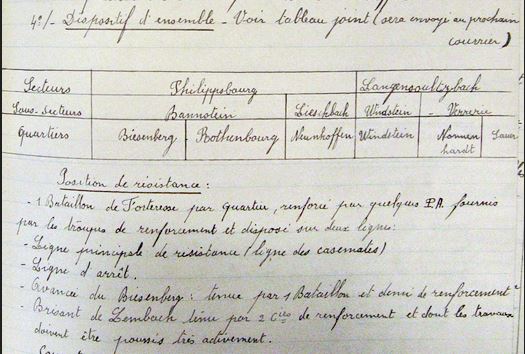 4º/- Dispositif d'ensemble - Voir tableau joint (sera envoyé au prochain
courrier)
Secteurs Philippsbourg Langensoultzbach
Sous-secteurs Bannstein Lieschbach Windstein - Verrerie
Quartiers Biesenberg Rothenbourg Neunhoffen Windstein Nonnen
hardt
Position de résistance :
- 1 Bataillon de Forteresse par quartier, renforcé par quelques P.A. fournis
par les troupes de renforcement et disposé sur deux ligne:
- Ligne principale de résistance (ligne des casemates)
- Ligne d'arrêt.
- Avancée du Biesenberg : tenue par 1 Bataillon et demi de renforcement
- Brisant de Lembach tenu par 2 Cies de renforcement et dont les travaux
doivent être poussés très activement.